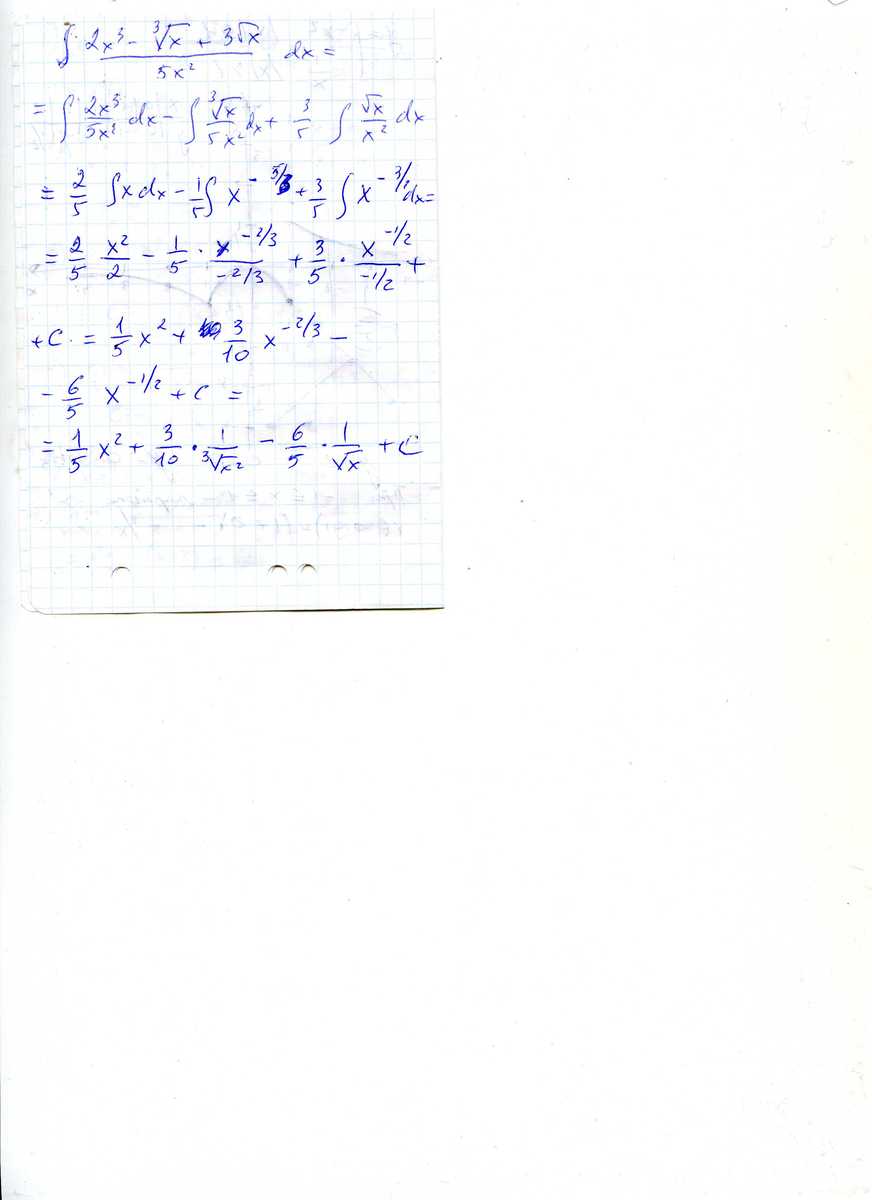 ∫ (2x³ - ∛x + 3√x)/(5x²) dx =
= ∫ 2x³/5x² dx - ∫ ∛x/5x² dx + 3/5 ∫ √x/x² dx
= 2/5 ∫x dx - 1/5 ∫ x^(-5/3) + 3/5 ∫ x^(-3/2) dx =
= 2/5 x²/2 - 1/5 · x^(-2/3)/(-2/3) + 3/5 · x^(-1/2)/(-1/2) +
+ C. = 1/5 x² + 3/10 x^(-2/3) -
- 6/5 x^(-1/2) + C =
= 1/5 x² + 3/10 · 1/∛x² - 6/5 · 1/√x + C